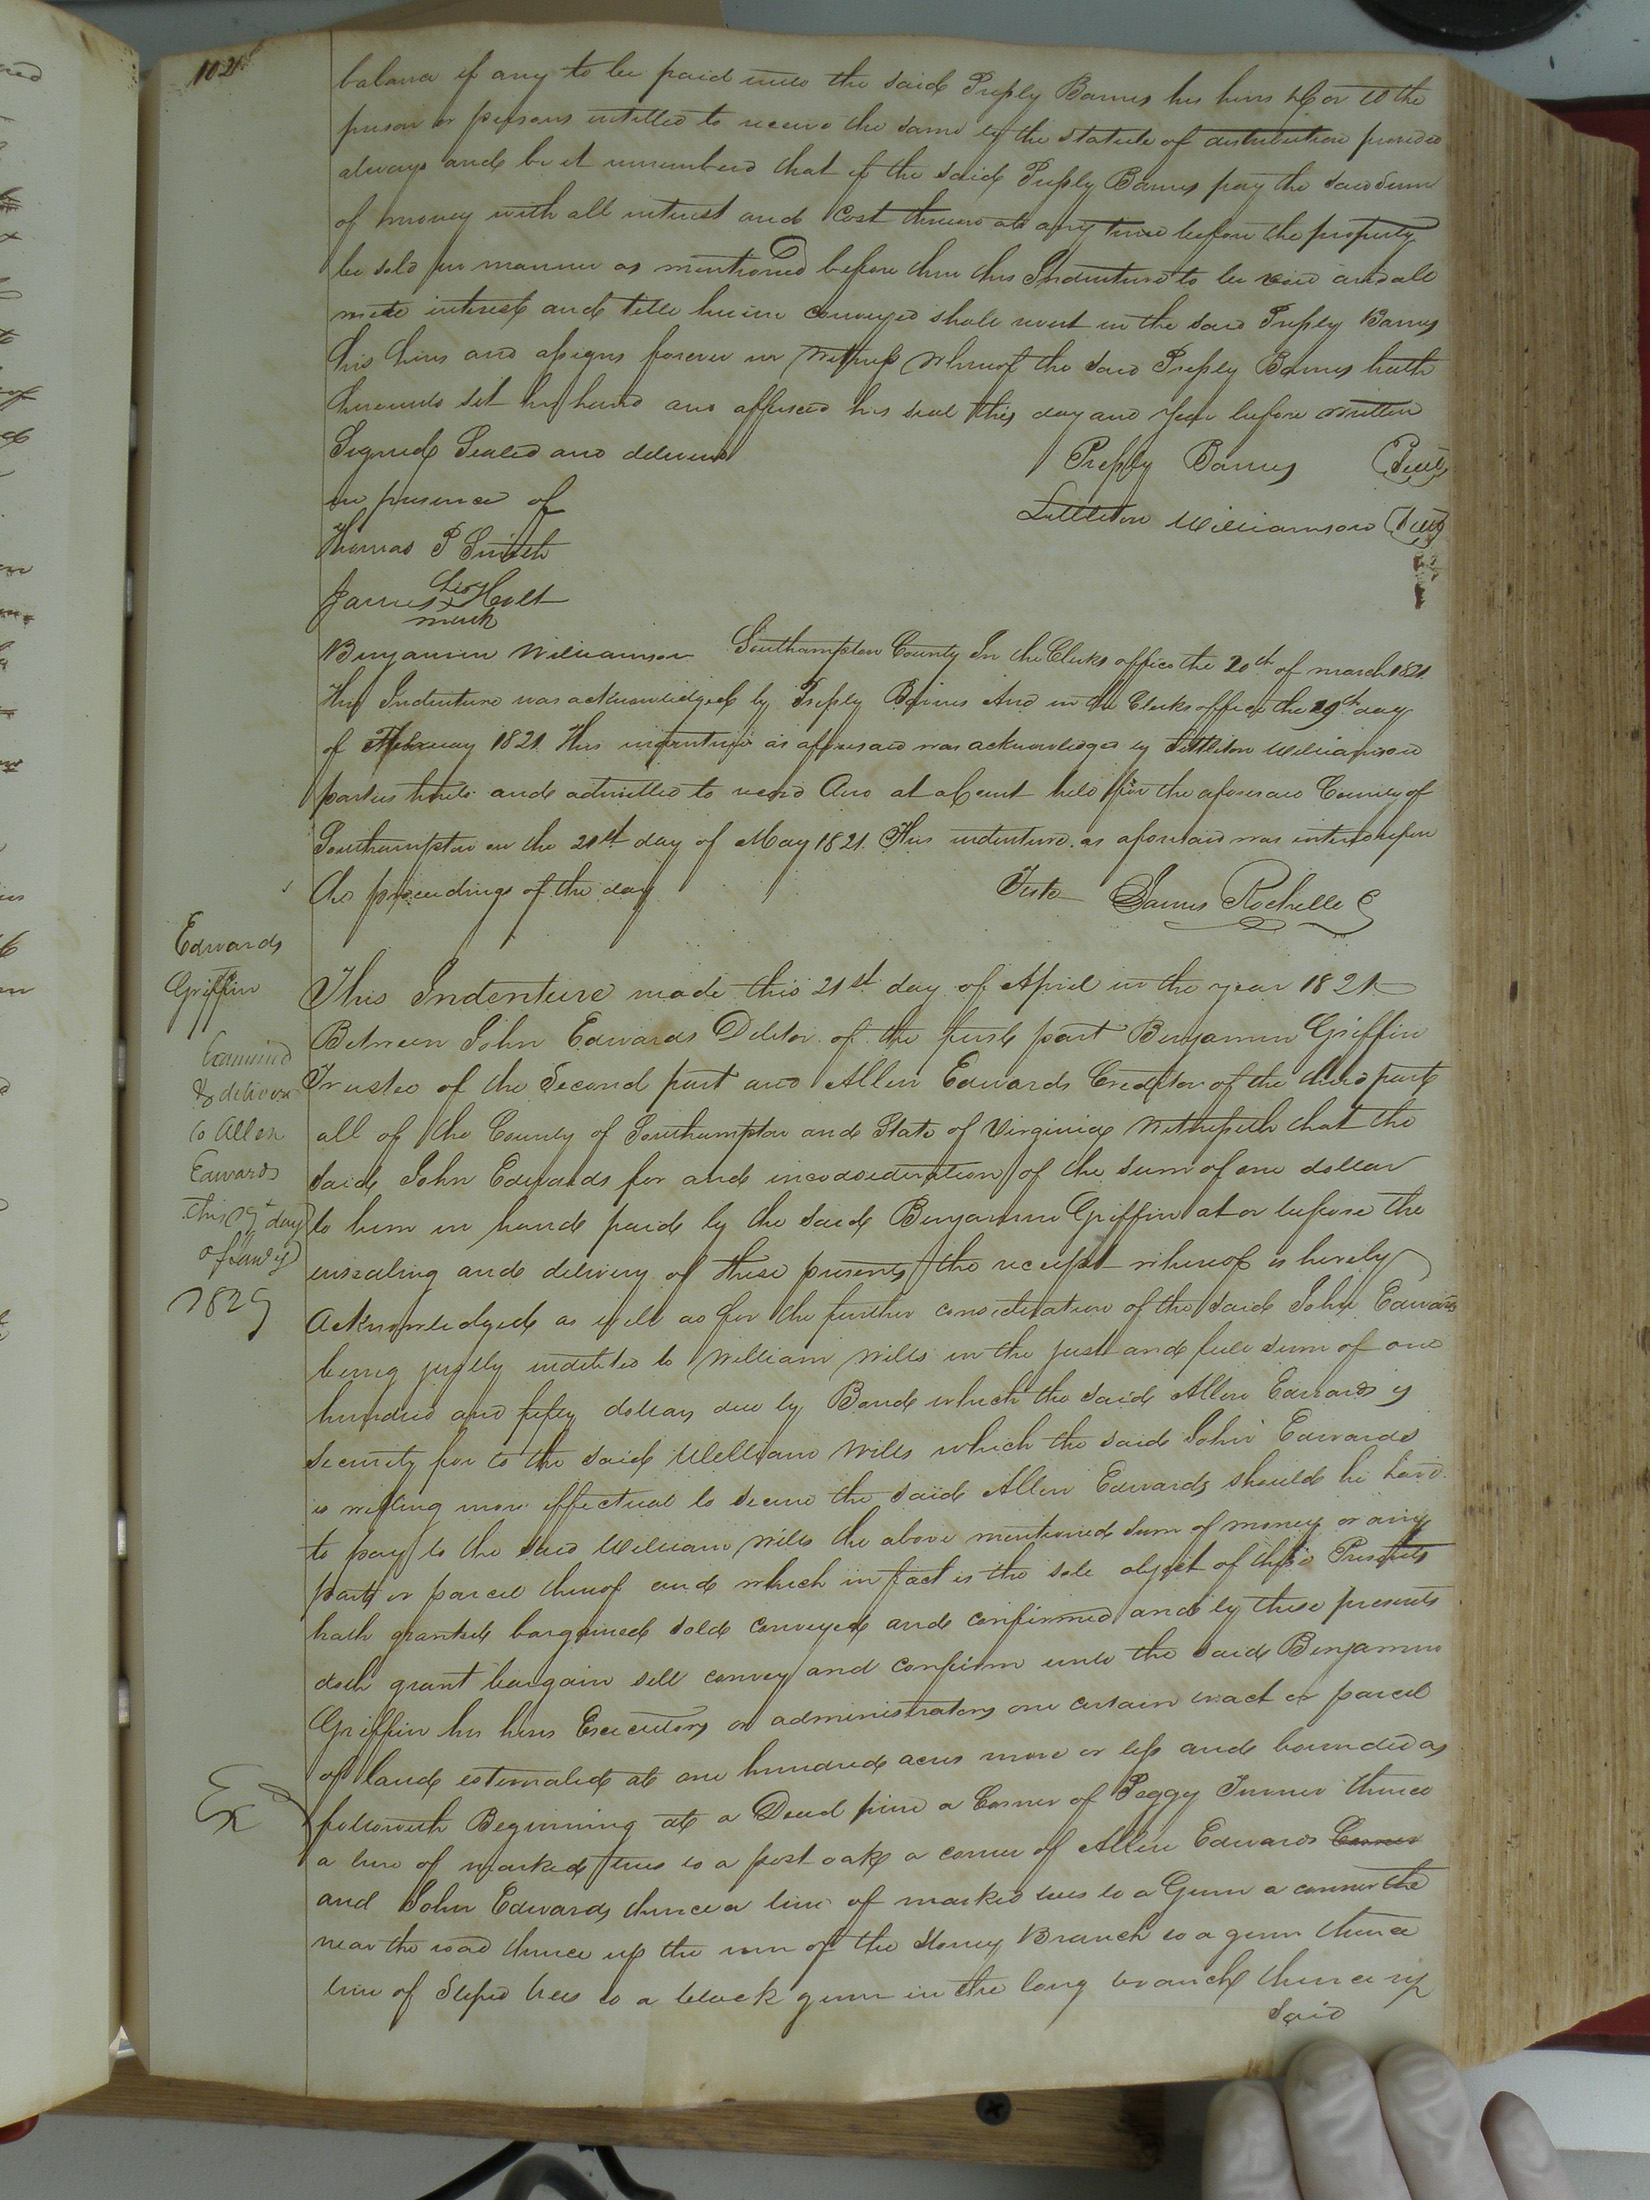 102
balance if any to be paid unto the said Presly Barnes his heirs &c or to the
person or persons intitled to receive the same by the Statute of distribution provided
always and be it remembered that if the said Presly Barnes pay the said Sum
of money with all interest and Cost thereon at any time before the property
be sold in manner as mentioned before then this Indenture to be void and all
interest and title herein conveyed shall revert in the said Presly Barnes
his heirs and assigns forever in Witness Whereof the said Presly Barnes hath
hereunto set his hand and affixed his seal this day and year before written
Signed Sealed and delivered
Presly Barnes (Seal)
in presence of
Littleton Williamson (Seal)
Thomas P Smith
his
James x Holt
mark
Benjamin Williamson Southampton County In the Clerks office the 20th of march 1821
This Indenture was acknowledged by Presly Barnes And in the Clerks office the 29th day
of 1821 This indenture as aforesaid was acknowledged by Littleton Williamson
parties hereto and admitted to record And at a Court held for the aforesaid County of
Southampton on the 21st day of May 1821 This indenture as aforesaid was entered upon
the proceedings of the day
Teste James Rochelle C
Edwards
Griffin
Examined
& deliverd
to Allen
Edwards
this day
of
1829
This Indenture made this 21st day of April in the year 1821
Between John Edwards Debtor of the first part Benjamin Griffin
Trustee of the Second part and Allen Edwards Creditor of the third part
all of the County of Southampton and State of Virginia Witnesseth that the
said John Edwards for and in consideration of the sum of one dollar
to him in hand paid by the said Benjamin Griffin at or before the
ensealing and delivery of these presents the receipt whereof is hereby
Acknowledged as well as for the further consideration of the said John Edwards
being justly indebted to William Wills in the just and full sum of one
hundred and fifty dollars due by Bond which the said Allen Edwards is
security for to the said William Wills which the said John Edwards
is willing more effectual to secure the said Allen Edwards should he have
to pay to the said William Wills the above mentioned sum of money or any
part or parcel thereof and which in fact is the sole object of these Presents
hath granted bargained sold conveyed and confirmed and by these presents
doth grant bargain sell convey and confirm unto the said Benjamin
Griffin his heirs Executors or administrators one certain tract or parcel
of land estimated at one hundred acres more or less and bounded as
Ex
followeth Beginning at a Dead pine a Corner of Peggy Turner thence
a line of marked trees to a post oak a corner of Allen Edwards Corner
and John Edwards thence a line of marked trees to a Gum a corner the
near the road thence up the run of the Stoney Branch to a gum thence
line of trees to a black gum in the long branch thence up
said